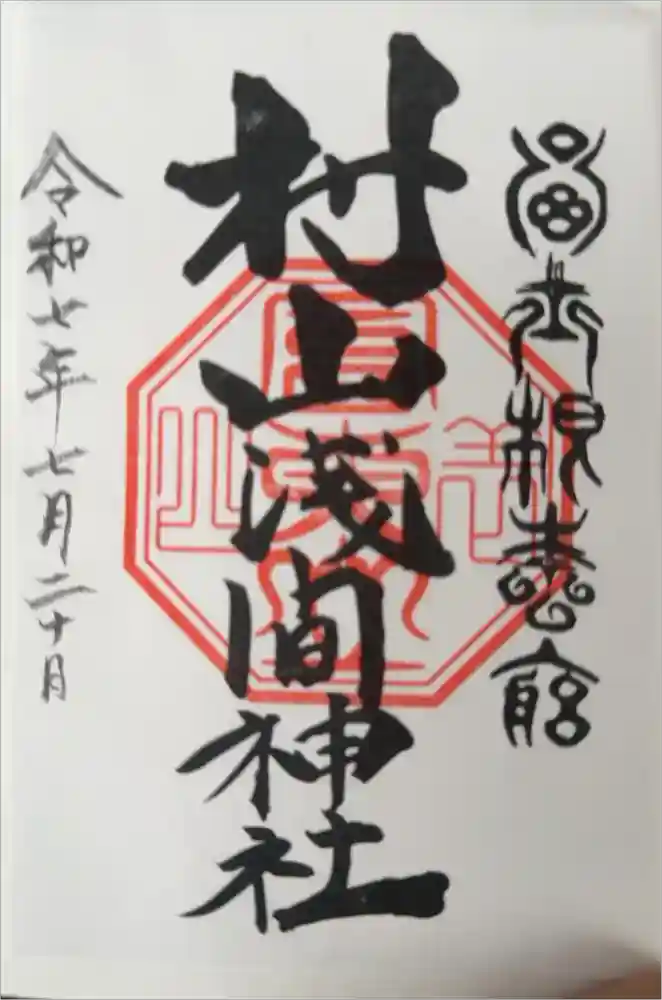 富士根本宮
村山浅間神社
令和七年七月二十日